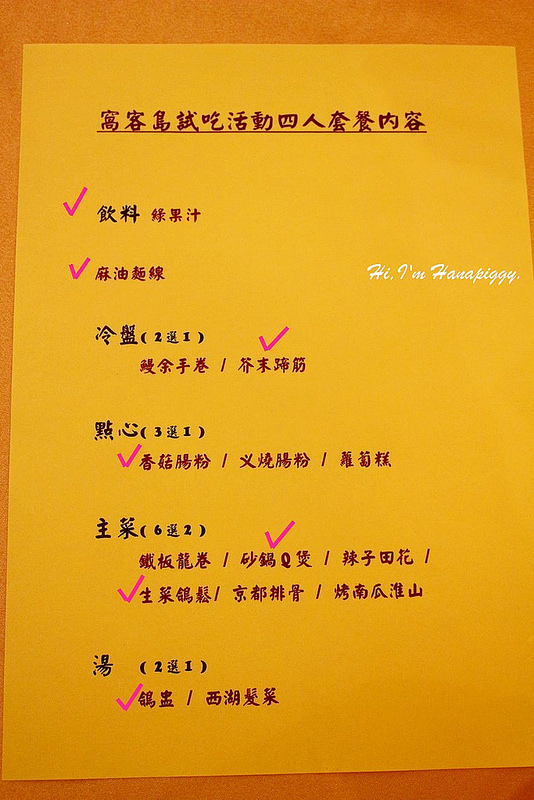 窩客島試吃活動四人套餐內容
飲料 綠果汁
麻油麵線
Hi, I'm Hanapiggy.
冷盤(2選1)
鰻余手卷 / 芥末蹄筋
點心(3選1)
香菇腸粉 / 义燒腸粉 / 蘿蔔糕
主菜(6選2)
鐵板龍卷 / 砂鍋Q煲 / 辣子田花 /
生菜鴿鬆/ 京都排骨 / 烤南瓜淮山
湯 (2選1)
鴿盅 / 西湖髮菜